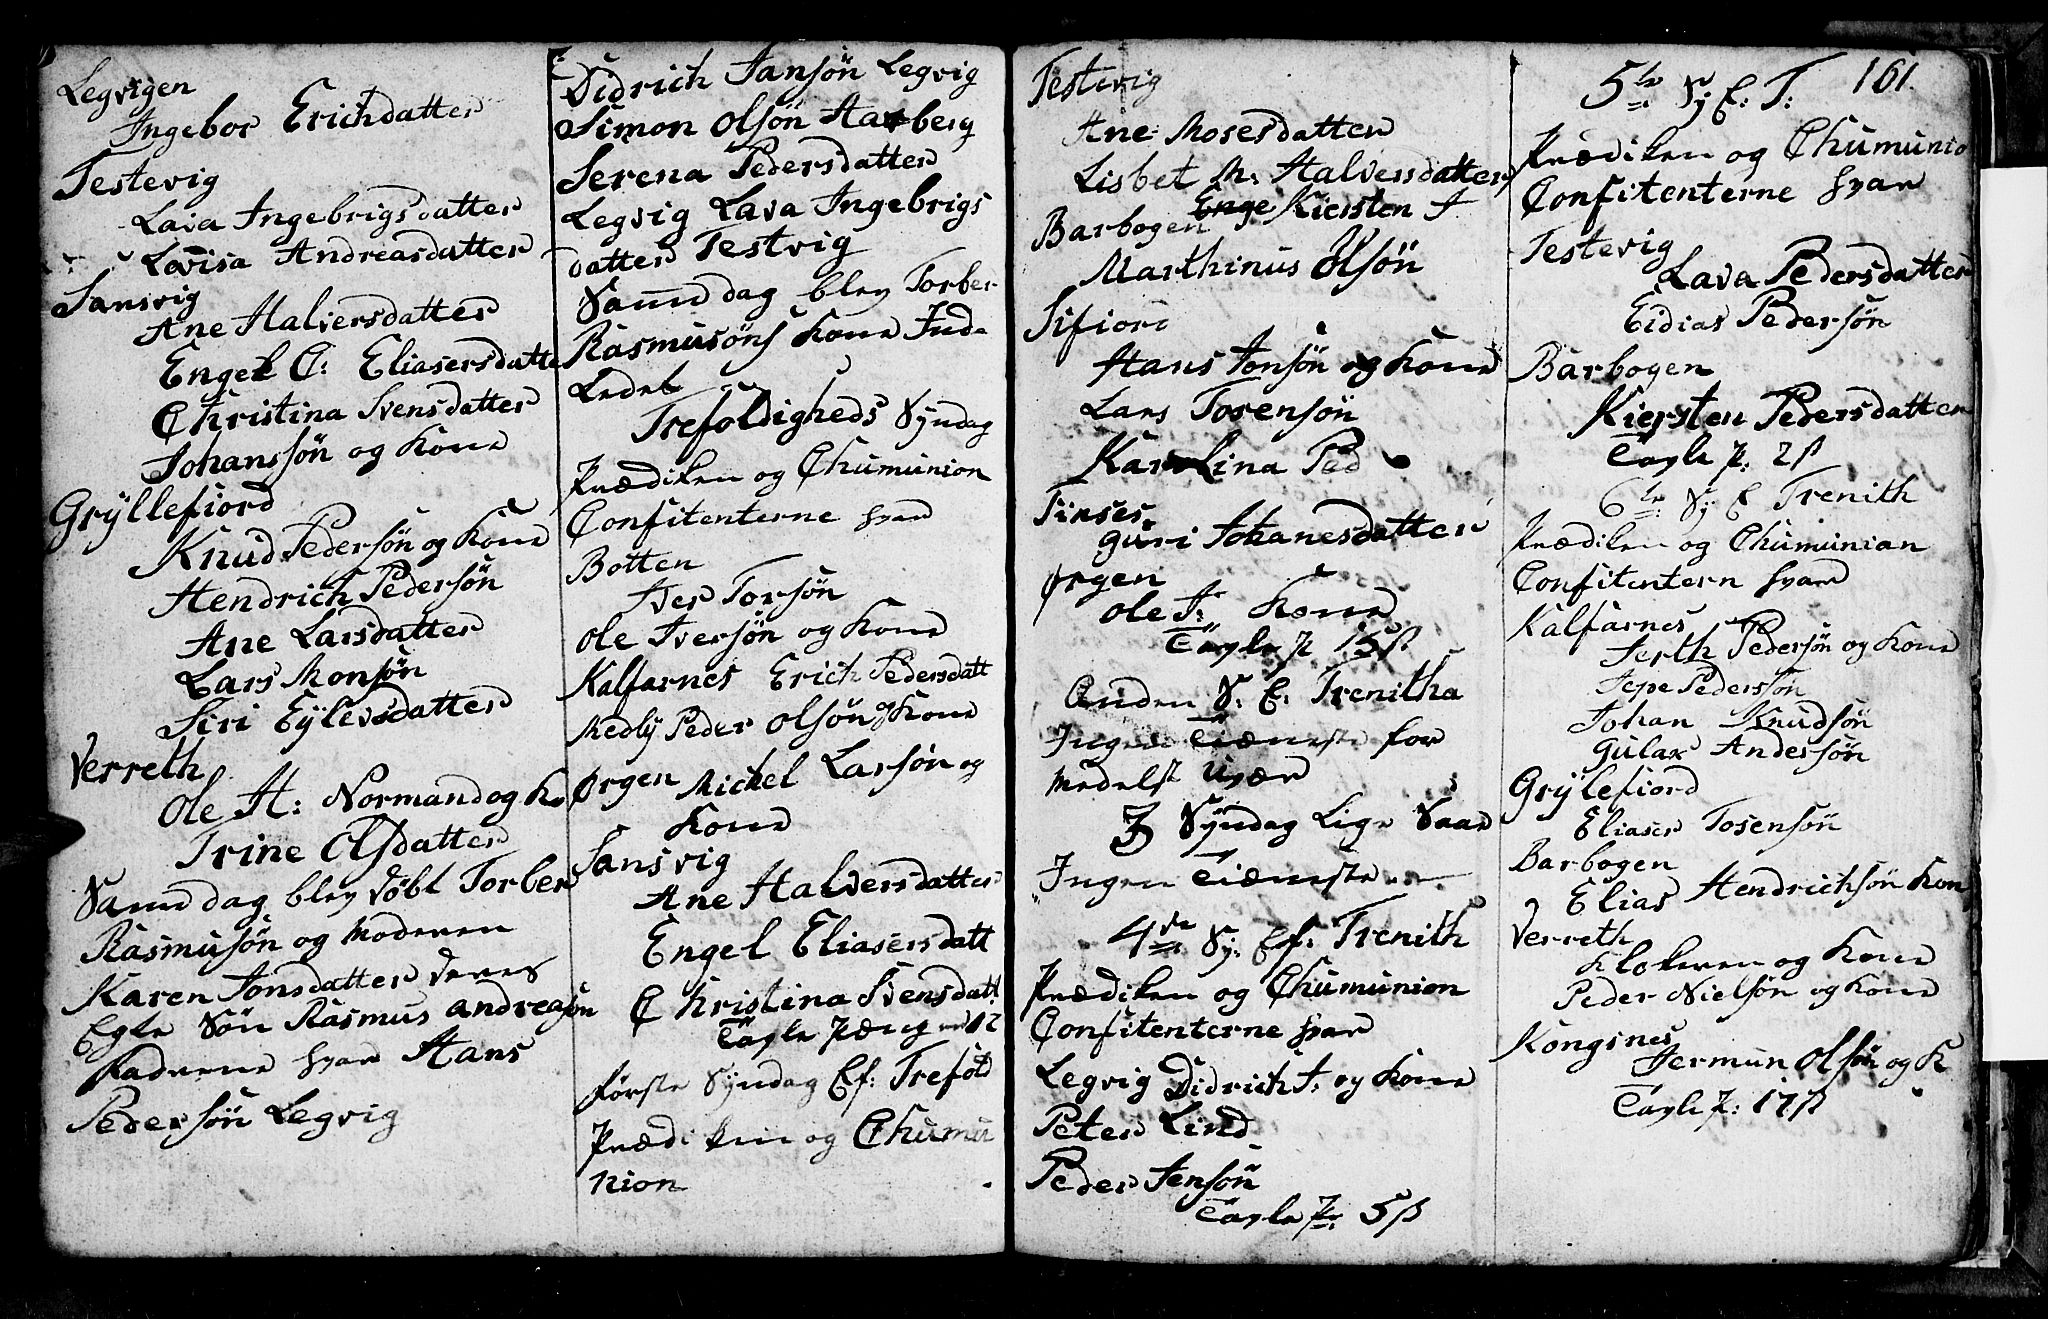 Legvigen
Ingebor Erichdatter
Testevig
Lava Ingebrigsdatter
Lovisa Andreasdatter
Sansvig
Ane Halversdatter
Engel C: Eliasersdatte
Christina Svensdatter
Johanssön og Kone
Gryllefiord
Knud Pedersön og Kone
Hendrich Pedersön
Ane Larsdatter
Lars Monsön
Siri Eylevsdatter
Verreth
Ole H: Normand og Ko
Trine Olsdatter
Samme dag blev döbt Torber
Rasmusön og Moderen
Karen Jonsdatter deres
Egte Sön Rasmus andreasön
Fadrene hvar Hans
Pedersön Legvig
Didrich Jansön Legvig
Simon Olsön Haberg
Serena Pedersdatter
Legvig Lava Ingebrigs
datter Testvig
Samme dag blev Torber
Rasmusöns Kone Inde
Ledet
Trefoldigheds Syndag
Prædiken og Chumunion
Confitenterne hvar
Botten
Iver Torsön
Ole Iversön og Kone
Kalfarnes Erich Pedersdatt
Medby Peder Olsön og Kone
Ørgen Michel Larsön og
Kone
Sansvig
Ane Halversdatter
Engel Eliasersdatt
Christina Svensdatt
Tavle Pænge 12
förste Syndag Ef: Trefold
Prædiken og Chumu
nion
Testevig
Ane Mosesdatter
Lisbet M: Halversdatter
Barbogen Enge Kiersten J
Marthinus Olsön
Sifiord
Hans Jonsön og Kone
Lars Torensön
Karolina Ped
Finses
Guri Johanesdatter
Ørgen
Ole J: Kone
Tavle P 15 ß
Anden S: E: Trenitha
Ingen Tieneste for
Medelst Uvær
3 Syndag Lige Saa
Ingen Tieneste
4de Sy: Ef: Trenith
Prædiken og Chumunion
Confitenterne hvar
Legvig Didrich J: og Kone
Peter Lind
Peder Jensön
Tavle P: 5 ß
161
5te Sy E: T:
Prædiken og Chumunio
Confitenterne hvar
Testevig
Lava Pedersdatter
Eidias Pedersön
Barbogen
Kiersten Pedersdatter
Tavle P: 2 ß
6te Sy E Trenith
Prædiken og Chumunian
Confitentern hvar
Kalfarnes
Serth Pedersön og Kone
Jepe Pedersön
Johan Knudsön
Gulax Andersön
Gryllefiord
Eliaser Tosensön
Barbogen
Elias Hendrichsön Kon
Verreth
Klokeren og Kone
Peder Nielsön og Kone
Kongsnes
Jermun Olsön og K
Tavle P: 17 ß